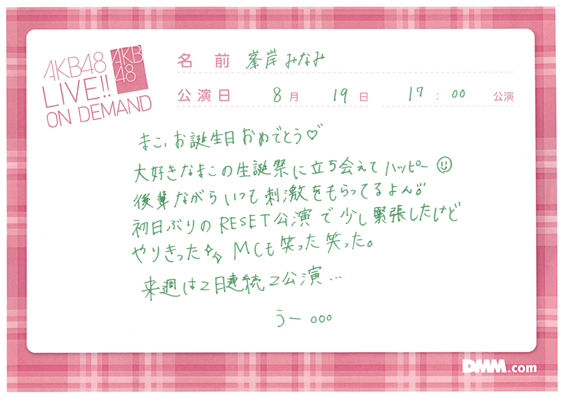 AKB48
LIVE!!
ON DEMAND
AKB
48
名前 峯岸みなみ
公演日 8月 19日 17:00 公演
まこ、お誕生日おめでとう♡
大好きなまこの生誕祭に立ち会えてハッピー☺
後輩ながらいつも刺激をもらってるよん♪
初日ぶりのRESET公演で少し緊張したけど
やりきった✨ MCも笑った笑った。
来週は2日連続2公演...
うー。。。
DMM.com